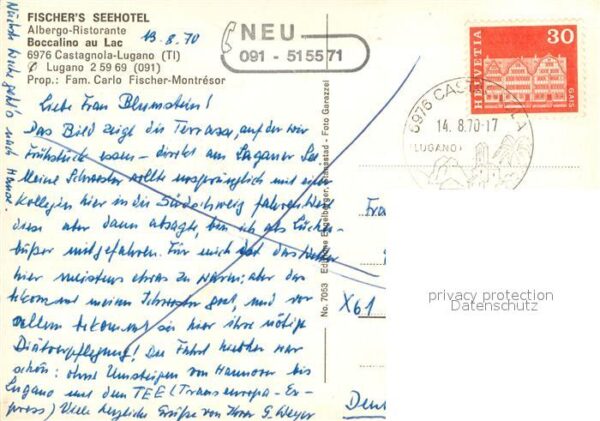 FISCHER'S SEEHOTEL
Albergo-Ristorante
Boccalino au Lac
6976 Castagnola-Lugano (TI)
Lugano 2 59 69 (091)
Prop.: Fam. Carlo Fischer-Montrésor
13.8.70
NEU
091 - 51 55 71
HELVETIA
30
GAIS
6976 CASTAGNOLA
14.8.70-17
(LUGANO)
Liebe Frau Blumstein!
Das Bild zeigt die Terrasse, auf der wir
frühstücken - direkt am Luganer See.
Meine Schwester wollte ursprünglich mit einer
Kollegin hier in die Südschweiz fahren. Weil
diese aber dann absagte, bin ich als Lücken-
büßer mitgefahren. Für mich ist das
hier meistens etwas zu warm; aber das
bekommt meiner Schwester gut, und vor
allem bekommt sie hier ihre nötige
Diätverpflegung! Die Fahrt hierher war
schön: ohne Umsteigen von Hannover bis
Lugano mit dem TEE (Transeuropa-Ex-
press) Viele herzliche Grüße von Ihrer G. Meyer
Nächste Woche geht's nach
Hause.
No. 7053 Edizione Engelberger Stansstad - Foto Garazzei
X61
privacy protection
Datenschutz